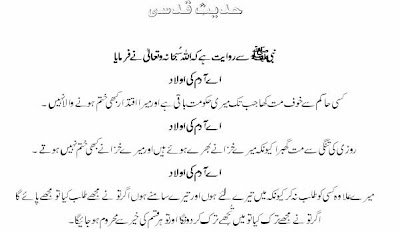 حدیث قدسی
نبی ﷺ سے روایت ہے کہ اللہ سُبحانہ وتعالیٰ نے فرمایا
اے آدم کی اولاد
کسی حاکم سے خوف مت کھا جب تک میری حکومت باقی ہے اور میرا اقتدار کبھی ختم ہونے والا نہیں ۔
اے آدم کی اولاد
روزی کی تنگی سے مت گھبرا کیونکہ میرے خزانے بھرے ہوئے ہیں اور میرے خزانے کبھی ختم نہیں ہوتے ۔
اے آدم کی اولاد
میرے علاوہ کسی کو طلب نہ کر کیونکہ میں تیرے لئے ہوں اور تیرے سامنے ہوں اگر تو نے مجھے طلب کیا تو مجھے پائے گا
اگر تو نے مجھے ترک کیا تو میں تُجھے ترک کر دونگا اور تو ہر قسم کی خیر سے محروم ہو جائیگا۔